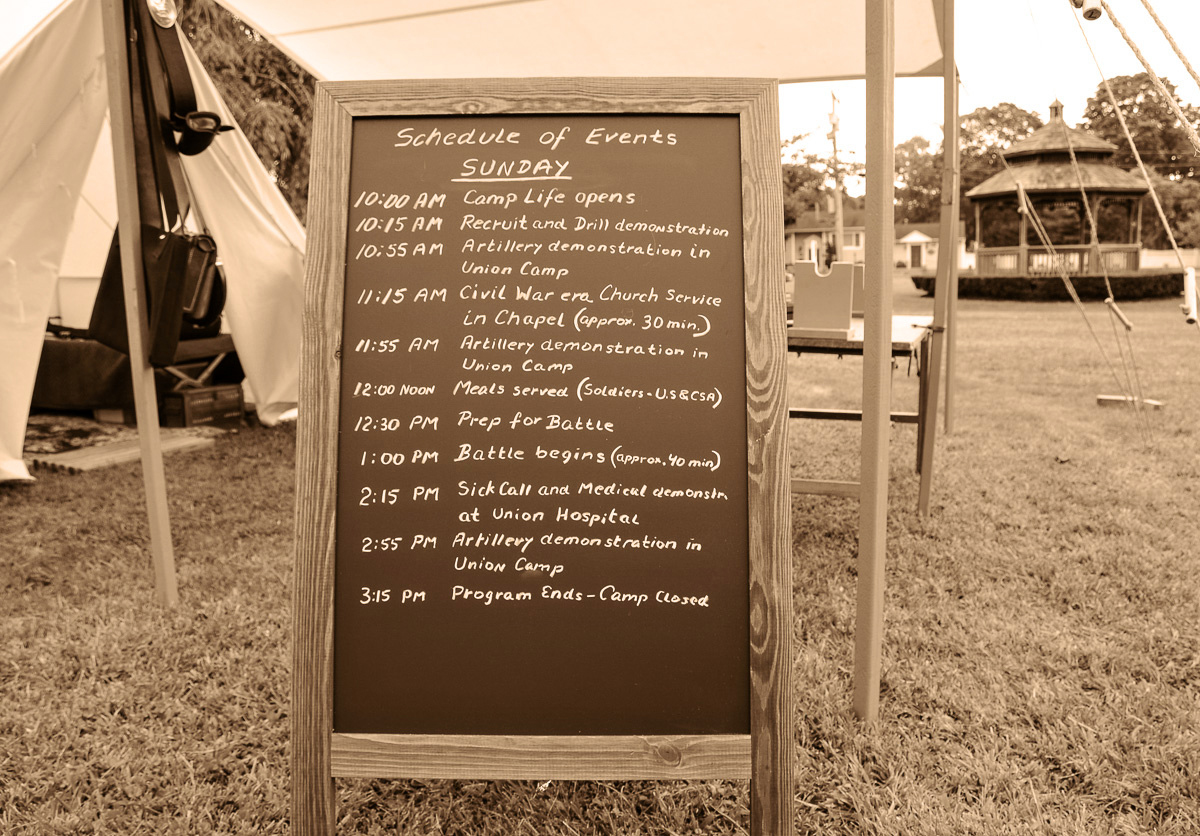 Schedule of Events
SUNDAY
10:00 AM Camp Life opens
10:15 AM Recruit and Drill demonstration
10:55 AM Artillery demonstration in
Union Camp
11:15 AM Civil War era Church Service
in Chapel (approx. 30 min.)
11:55 AM Artillery demonstration in
Union Camp
12:00 NOON Meals served (Soldiers - U.S & CSA)
12:30 PM Prep for Battle
1:00 PM Battle begins (approx. 40 min)
2:15 PM Sick Call and Medical demonstr.
at Union Hospital
2:55 PM Artillery demonstration in
Union Camp
3:15 PM Program Ends - Camp Closed